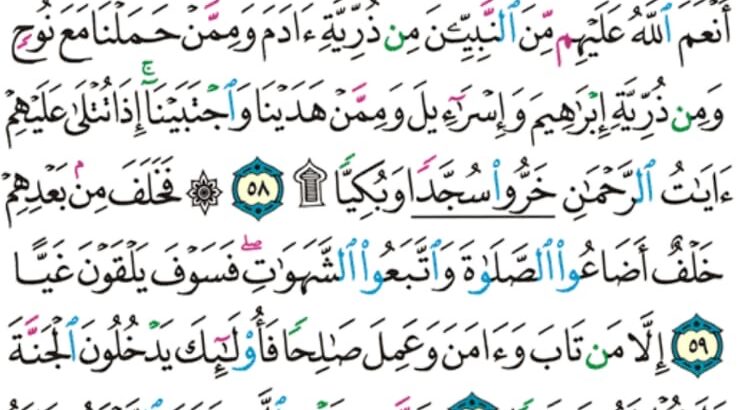 أَنۡعَمَ ٱللَّهُ عَلَيۡهِم مِّنَ ٱلنَّبِيِّـۧنَ مِن ذُرِّيَّةِ ءَادَمَ وَمِمَّنۡ حَمَلۡنَا مَعَ نُوحٖ
وَمِن ذُرِّيَّةِ إِبۡرَٰهِيمَ وَإِسۡرَٰٓءِيلَ وَمِمَّنۡ هَدَيۡنَا وَٱجۡتَبَيۡنَآۚ إِذَا تُتۡلَىٰ عَلَيۡهِمۡ
ءَايَٰتُ ٱلرَّحۡمَٰنِ خَرُّواْ سُجَّدٗا وَبُكِيّٗا ۩ ٥٨ ۞ فَخَلَفَ مِنۢ بَعۡدِهِمۡ
خَلۡفٌ أَضَاعُواْ ٱلصَّلَوٰةَ وَٱتَّبَعُواْ ٱلشَّهَوَٰتِۖ فَسَوۡفَ يَلۡقَوۡنَ غَيًّا
٥٩ إِلَّا مَن تَابَ وَءَامَنَ وَعَمِلَ صَٰلِحٗا فَأُوْلَٰٓئِكَ يَدۡخُلُونَ ٱلۡجَنَّةَ